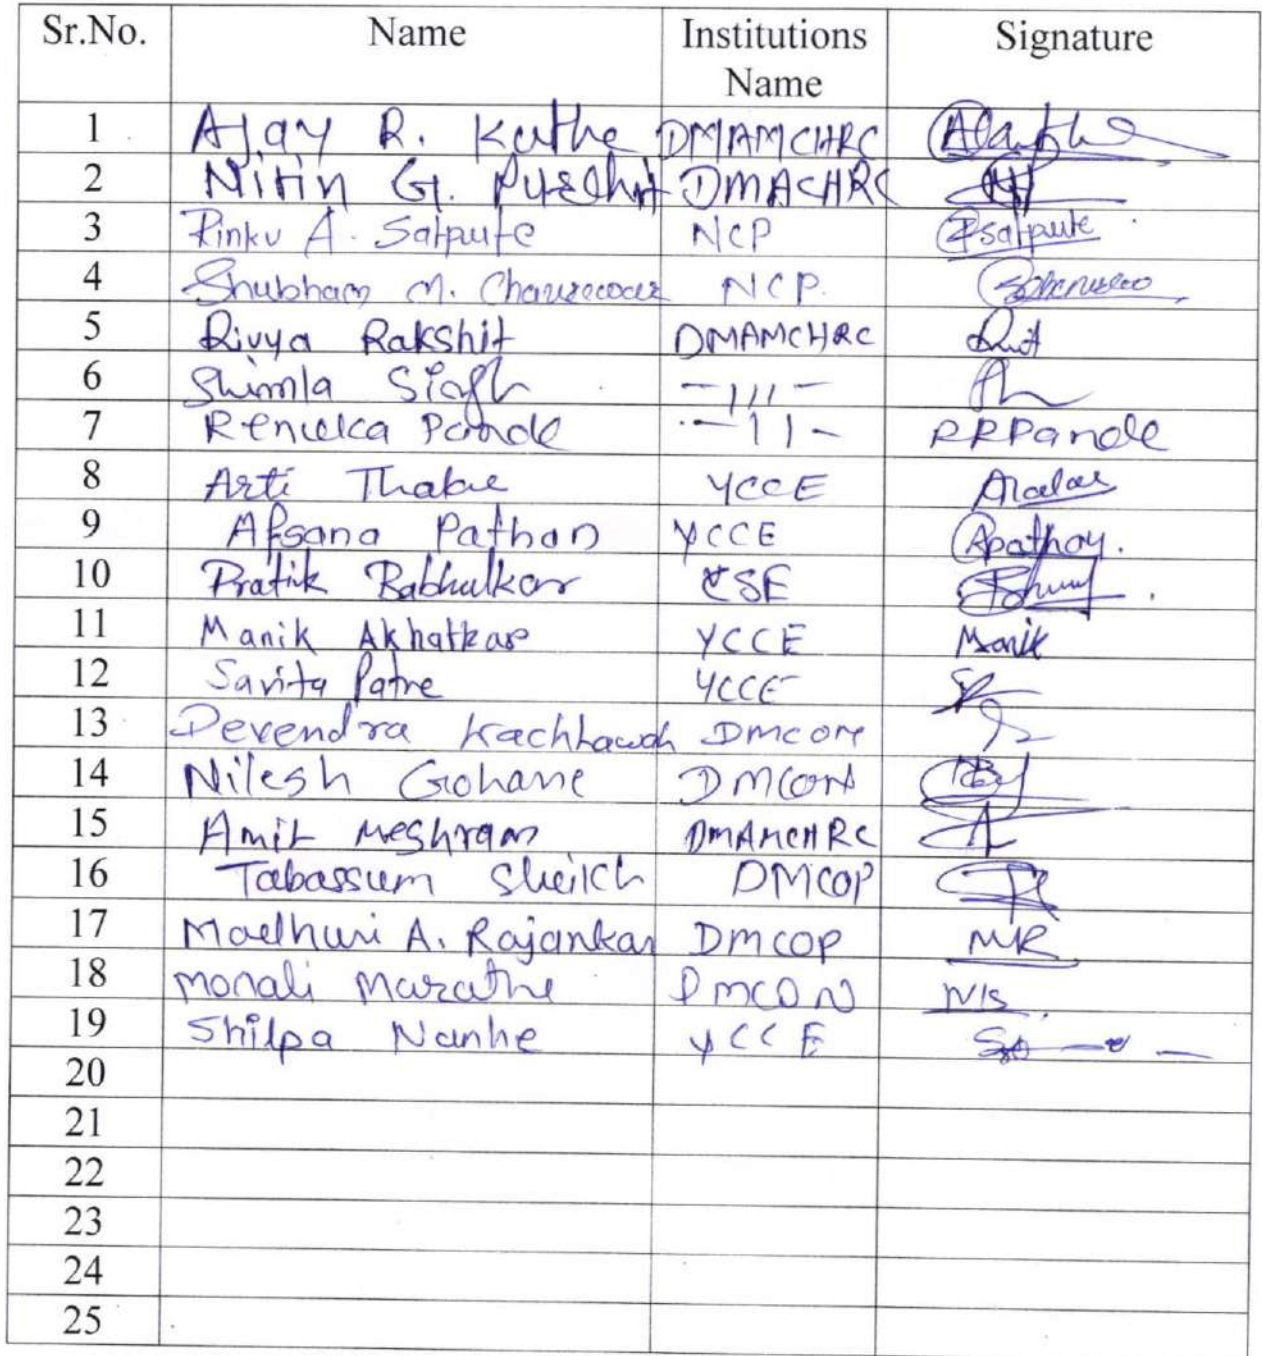 Sr.No. Name Institutions Name Signature
1 Ajay R. Kathe DMAMCHRC
2 Nitin G. DMACHRC
3 Pinku A. Satpute NCP Psatpute
4 Shubham M. NCP.
5 Divya Rakshit DMAMCHRC
6 Shimla Singh -111-
7 Renuka Pande -11- RRPande
8 Arti Thakre YCCE
9 Afsana Pathan YCCE Apathan.
10 Pratik Babhulkar CSE
11 Manik Akhatkar YCCE Manik
12 Savita Patre YCCE
13 Devendra Kachhawah DMCON
14 Nilesh Gohane DMCON
15 Amit Meshram DMAMCHRC
16 Tabassum Sheikh DMCOP
17 Madhuri A. Rajankar DMCOP MR
18 Monali Marathe DMCON
19 Shilpa Nanhe YCCE
20
21
22
23
24
25